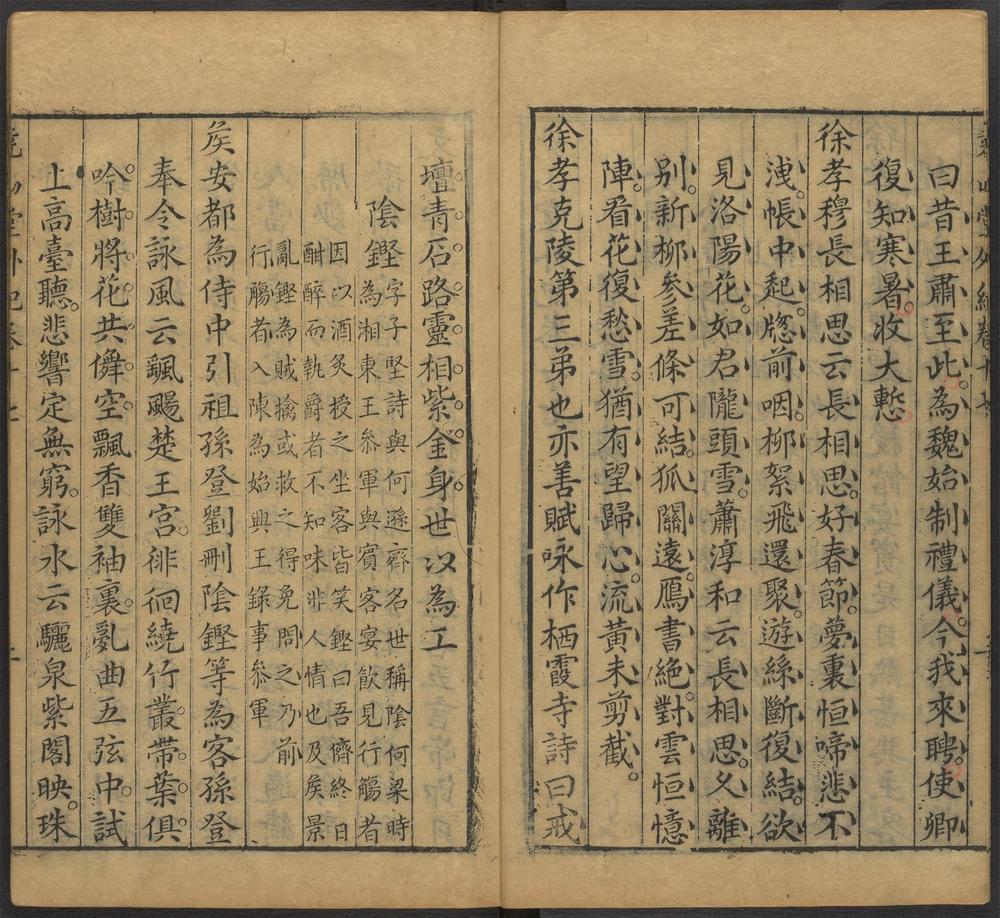 曰昔王肅至此為魏始制禮儀今我來聘使卿
復知寒暑收大慙
徐孝穆長相思云長相思好春節夢裏恒啼悲不
洩帳中起窓前咽柳絮飛還聚遊絲斷復結欲
見洛陽花如君隴頭雪蕭淳和云長相思久離
别新柳參差條可結狐關遠鴈書絕對雲恒憶
陣看花復愁雪猶有望歸心流黃未剪截
徐孝克陵第三弟也亦善賦咏作栖霞寺詩曰戒
壇青石路靈相紫金身世以為工
陰鏗
字子堅詩與何遜齊名世稱陰何梁時
為湘東王叅軍與賓客宴飲見行觴者
因以酒炙授之坐客皆笑鏗曰吾儕終日
酣醉而執爵者不知味非人情也及矦景
亂鏗為賊擒或救之得免問之乃前
行觴者入陳為始興王錄事叅軍
矦安都為侍中引祖孫登劉刪陰鏗等為客孫登
奉令詠風云飄颺楚王宮徘徊繞竹叢帶葉俱
吟樹將花共儛空飄香雙袖裏亂曲五弦中試
上高臺聽悲響定無窮詠水云驪泉紫閣映珠